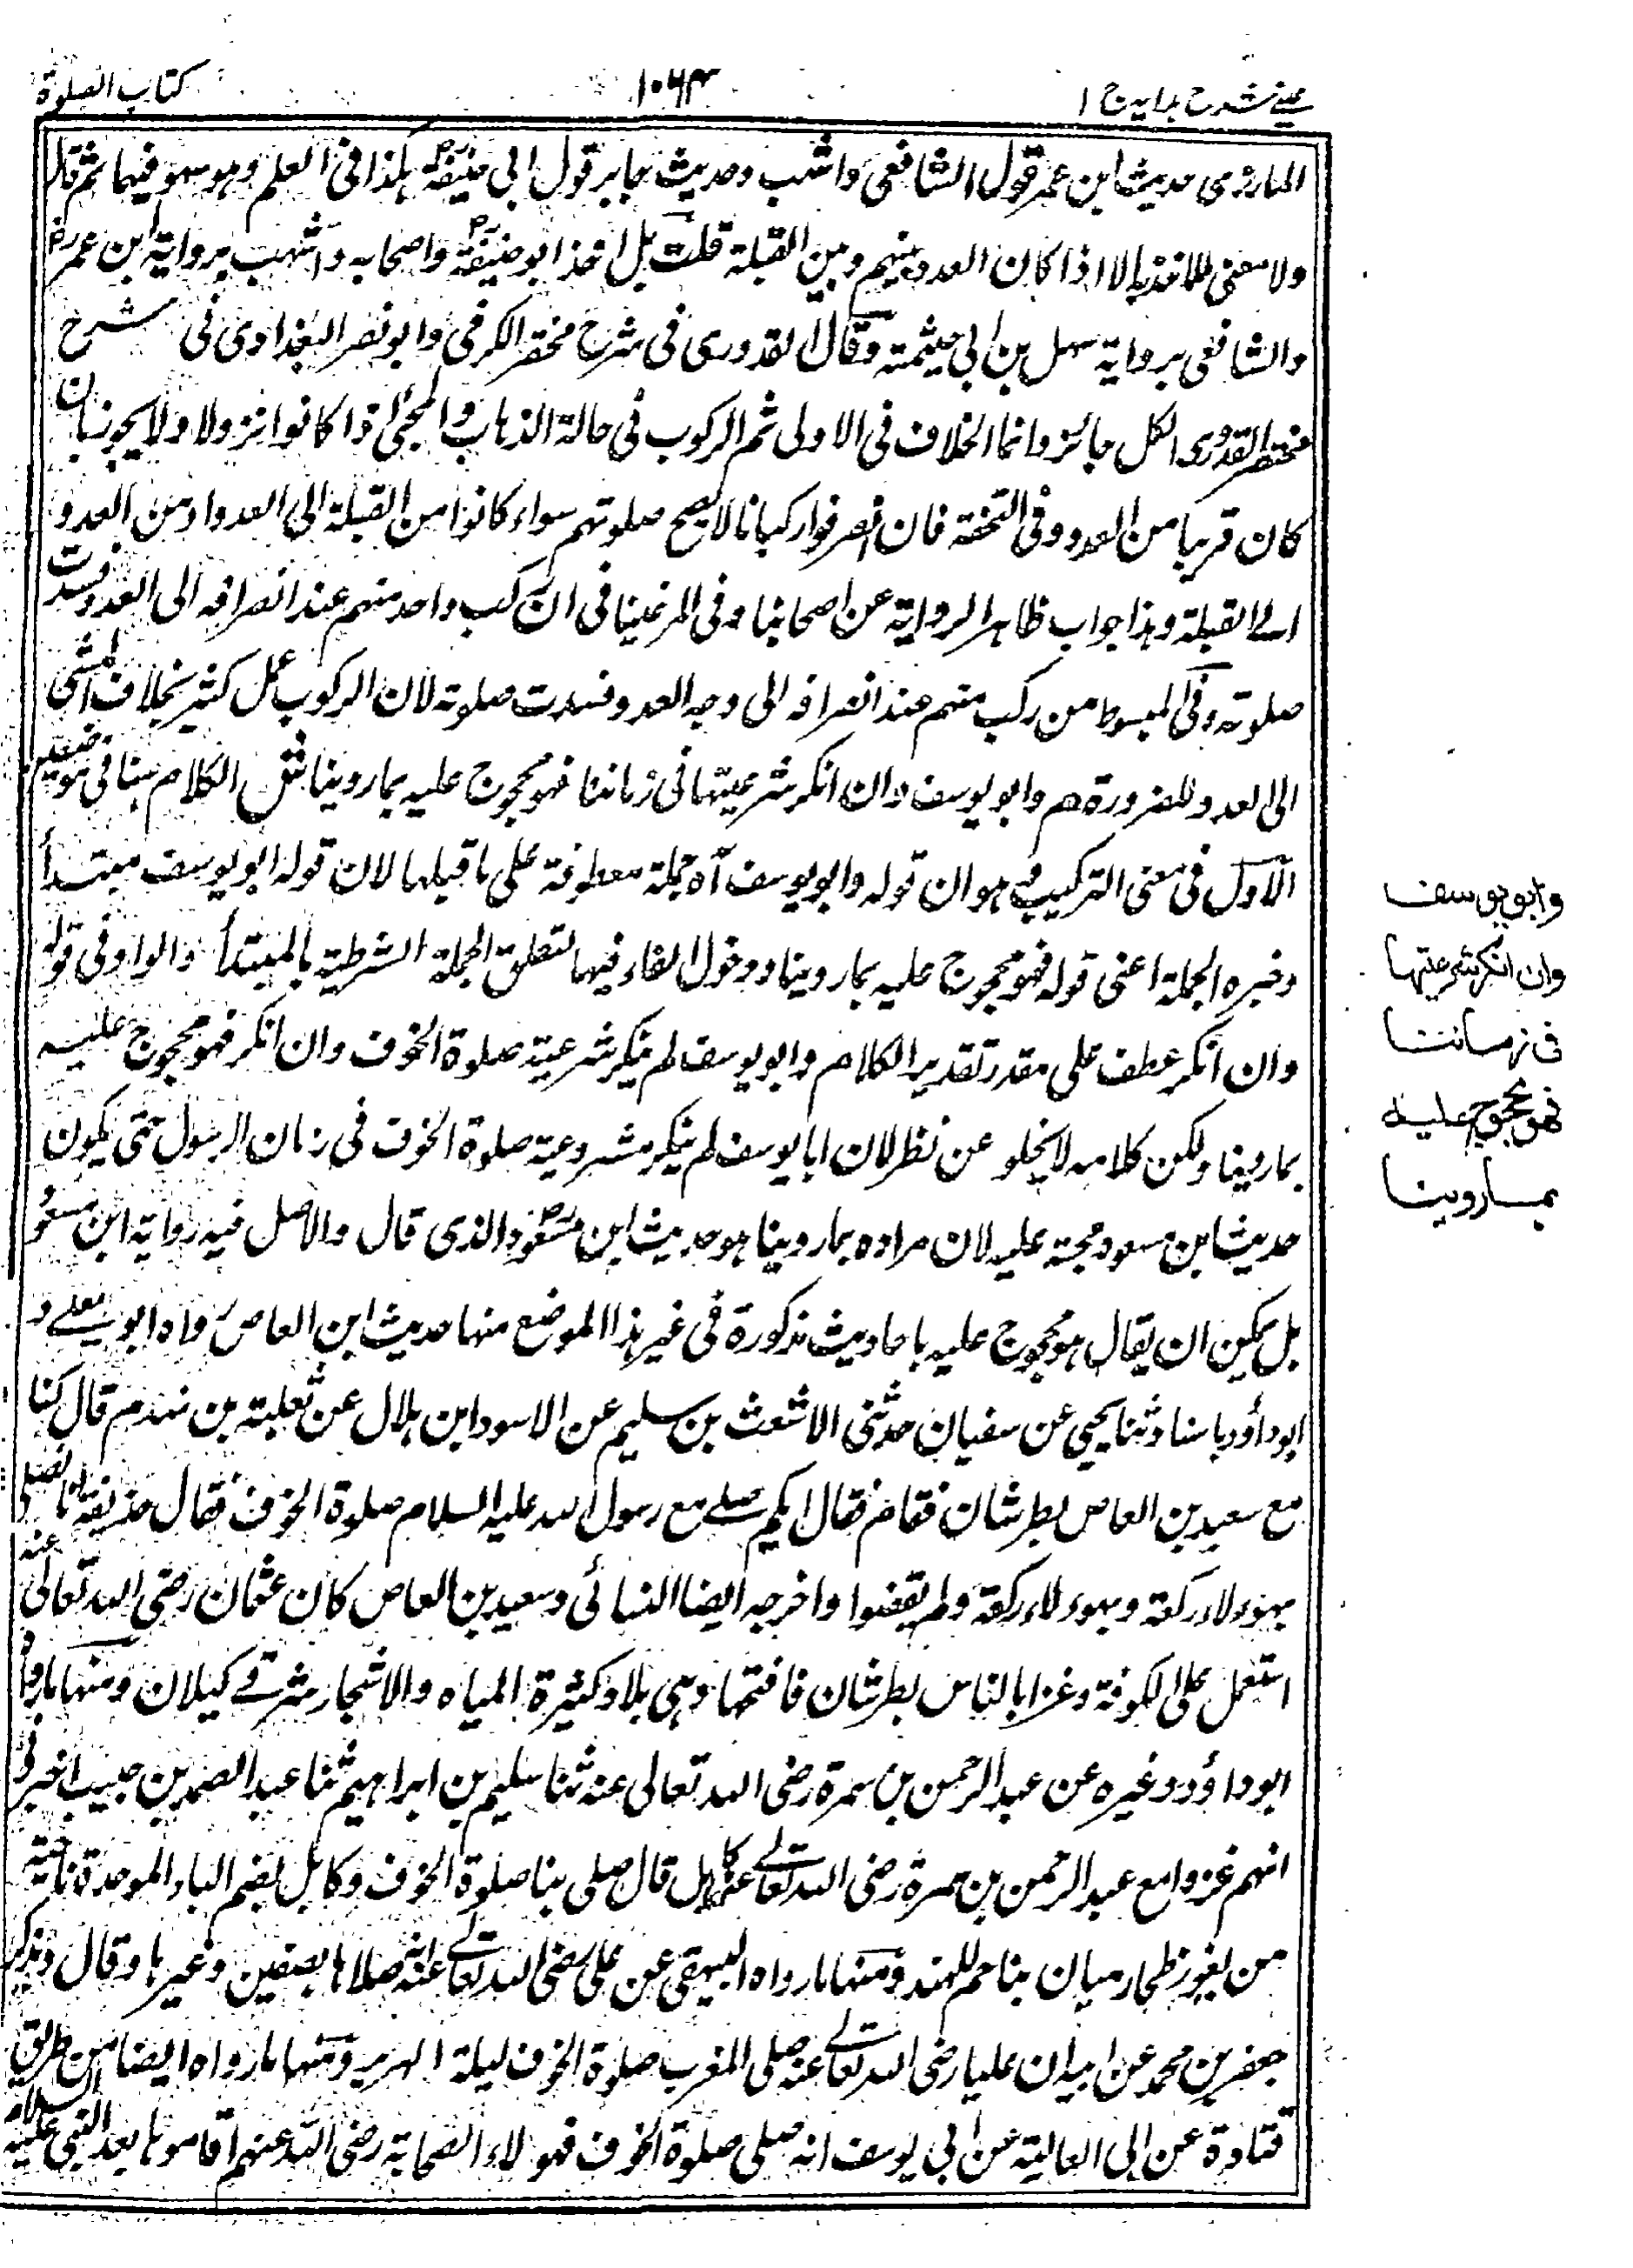 عینی شرح ہدایہ ج ۱
۱۰۶۴
کتاب الصلوة
المازری حدیث ابن عمر قول الشافعی واشهب وحدیث جابر قول ابی حنیفة هکذا فی العلم وهو سهو فیهما ثم قال
ولا معنی للاخذ بها الا اذا کان العدو بینهم وبین القبلة قلت بل اخذ ابو حنیفة واصحابه واشهب بروایة ابن عمر رض
والشافعی بروایة سهل بن ابی حیثمة وقال القدوری فی شرح مختصر الکرخی وابو نصر البغدادی فی شرح
مختصر القدوری الکل جائز وانما الخلاف فی الاولی ثم الرکوب فی حالة الذهاب والمجئ اذا کانوا نزولا ولا یجوز بان
کان قریبا من العدو وفی التحفة فان انصرفوا رکبانا لا یصح صلوتهم سواء کانوا من القبلة الی العدو او من العدو
الی القبلة وهذا جواب ظاهر الروایة عن اصحابنا وفی المرغینانی ان رکب واحد منهم عند انصرافه الی العدو فسدت
صلوته وفی المبسوط من رکب منهم عند انصرافه الی وجه العدو فسدت صلوته لان الرکوب عمل کثیر بخلاف المشی
الی العدو للضرورة م وابو یوسف وان انکر شرعیتها فی زماننا فهو محجوج علیه بما روینا ش الکلام هنا فی موضعین
الاول فی معنی الترکیب وهو ان قوله وابو یوسف آه جملة معطوفة علی ما قبلها لان قوله ابو یوسف مبتدأ
وخبره الجملة اعنی قوله فهو محجوج علیه بما روینا ودخول الفاء فیها لتعلق الجملة الشرطیة بالمبتدأ والواو فی قوله
وان انکر عطف علی مقدر تقدیر الکلام وابو یوسف لم ینکر شرعیة صلوة الخوف وان انکر فهو محجوج علیه
بما روینا ولکن کلامه لا یخلو عن نظر لان ابا یوسف لم ینکر مشروعیة صلوة الخوف فی زمان الرسول حتی یکون
حدیث ابن مسعود حجة علیه لان مراده بما روینا هو حدیث ابن مسعود الذی قال والاصل فیه روایة ابن مسعود
بل یمکن ان یقال هو محجوج علیه باحادیث مذکورة فی غیر هذا الموضع منها حدیث ابن العاص رواه ابو یعلی و
ابو داؤد باسناد ثنا یحیی عن سفیان حدثنی الاشعث بن سلیم عن الاسود ابن هلال عن ثعلبة بن زهدم قال کنا
مع سعید بن العاص بطبرستان فقام فقال ایکم صلی مع رسول الله علیه السلام صلوة الخوف فقال حذیفة انا فصلی
بهؤلاء رکعة وبهؤلاء رکعة ولم یقضوا واخرجه ایضا النسائی وسعید بن العاص کان عثمان رضی الله تعالی عنه
استعمل علی الکوفة وغزا بالناس بطبرستان فافتتحها وهی بلاد کثیرة المیاه والاشجار شرقی کیلان ومنها ما رواه
ابو داؤد وغیره عن عبد الرحمن بن سمرة رضی الله تعالی عنه ثنا سلیم بن ابراهیم ثنا عبد الصمد بن حبیب اخبرنی
انهم غزوا مع عبد الرحمن بن سمرة رضی الله تعالی عنه کابل قال صلی بنا صلوة الخوف وکابل بضم الباء الموحدة ناحیة
من ثغور للهند ومنها ما رواه البیهقی عن علی رضی الله تعالی عنه انه صلاها بصفین وغیرها وقال ویذکر
جعفر بن محمد عن ابیه ان علیا رضی الله تعالی عنه صلی المغرب صلوة الخوف لیلة الهریر ومنها ما رواه ایضا من طریق
قتادة عن ابی العالیة عن ابی یوسف انه صلی صلوة الخوف فهولاء الصحابة رضی الله عنهم اقاموها بعد النبی علیه السلام
وابو یوسف
وان انکر شرعیتها
فی زماننا
فهو محجوج علیه
بما روینا